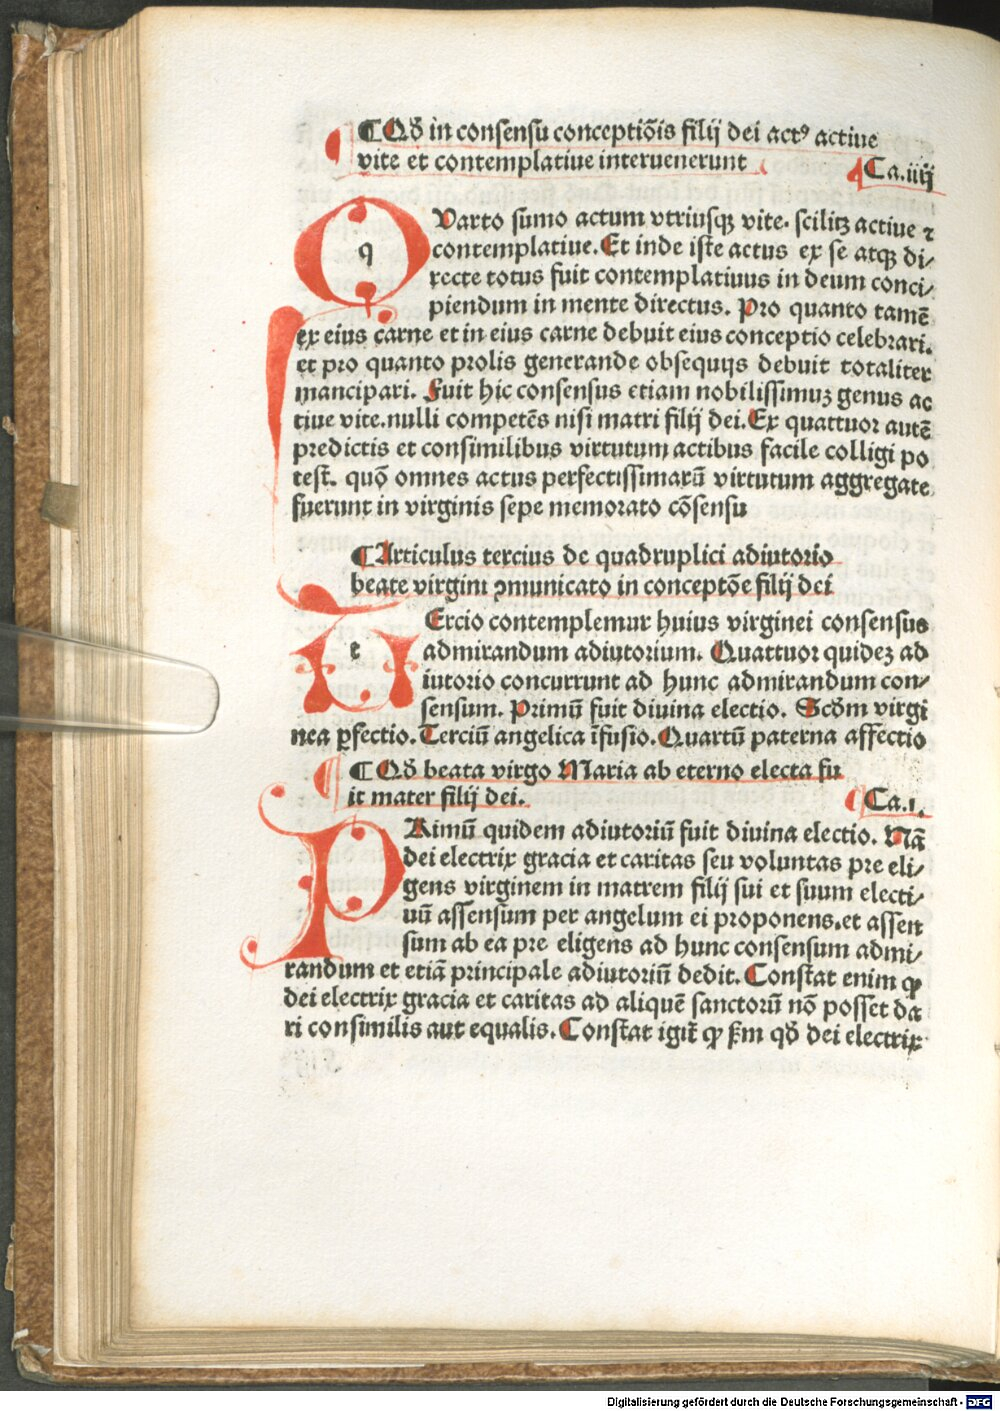 ¶ Qđ in consensu conceptiōis filij dei actꝰ actiue
vite et contemplatiue interuenerunt
¶ Ca.iiij
QVarto sumo actum vtriusqꝫ vite. scilitꝫ actiue ⁊
contemplatiue. Et inde iste actus ex se atqꝫ di/
recte totus fuit contemplatiuus in deum conci/
piendum in mente directus. Pro quanto tamē
ex eius carne et in eius carne debuit eius conceptio celebrari.
et pro quanto prolis generande obsequijs debuit totaliter
mancipari. Fuit hic consensus etiam nobilissimuꝫ genus ac
tiue vite. nulli competēs nisi matri filij dei. Ex quattuor autē
predictis et consimilibus virtutum actibus facile colligi po
test. quō omnes actus perfectissimarū virtutum aggregate
fuerunt in virginis sepe memorato cōsensu
¶ Articulus tercius de quadruplici adiutorio
beate virgini ꝯmunicato in conceptōe filij dei
TErcio contemplemur huius virginei consensus
admirandum adiutorium. Quattuor quideꝫ ad
iutorio concurrunt ad hunc admirandum con/
sensum. Primū fuit diuina electio. Scđm virgi
nea ꝑfectio. Terciū angelica īfusio. Quartū paterna affectio
¶ Qđ beata virgo Maria ab eterno electa fu
it mater filij dei.
¶ Ca.i.
PRimū quidem adiutoriū fuit diuina electio. Nā
dei electrix gracia et caritas seu voluntas pre eli/
gens virginem in matrem filij sui et suum electi/
uū assensum per angelum ei proponens. et assen
sum ab ea pre eligens ad hunc consensum admi/
randum et etiā principale adiutoriū dedit. Constat enim ꝙ
dei electrix gracia et caritas ad aliquē sanctorū nō posset da
ri consimilis aut equalis. Constat igit̄ ꝙ ẜm qđ dei electrix
Digitalisierung gefördert durch die Deutsche Forschungsgemeinschaft - DFG